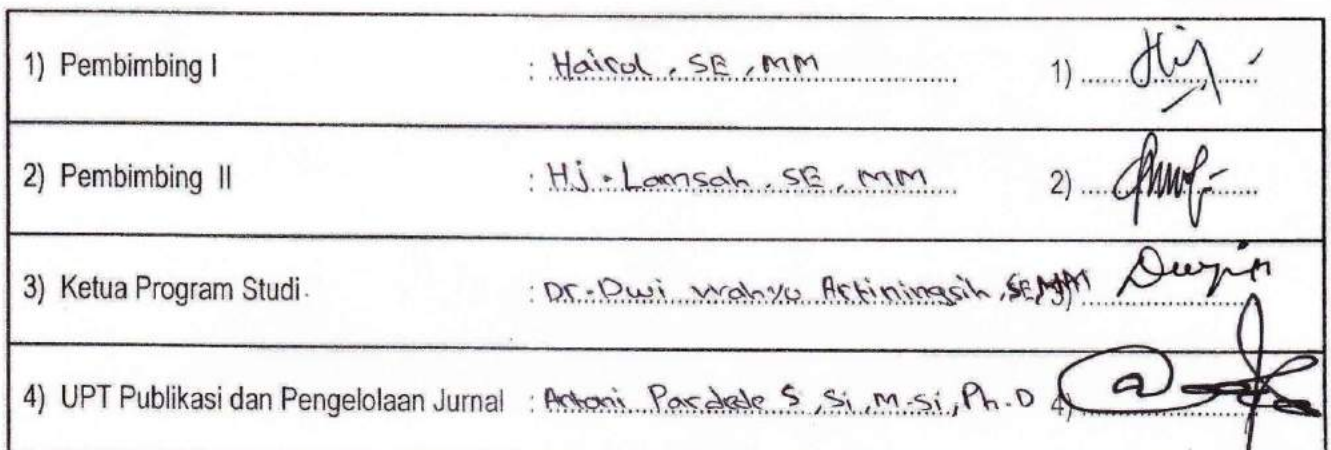 1) Pembimbing I : Hairul, SE, MM 1)
2) Pembimbing II : Hj. Lamsah, SE, MM 2)
3) Ketua Program Studi : Dr. Dwi Wahyu Artiningsih, SE, MM 3)
4) UPT Publikasi dan Pengelolaan Jurnal : Antoni Pardede S, Si, M.si, Ph.D 4)